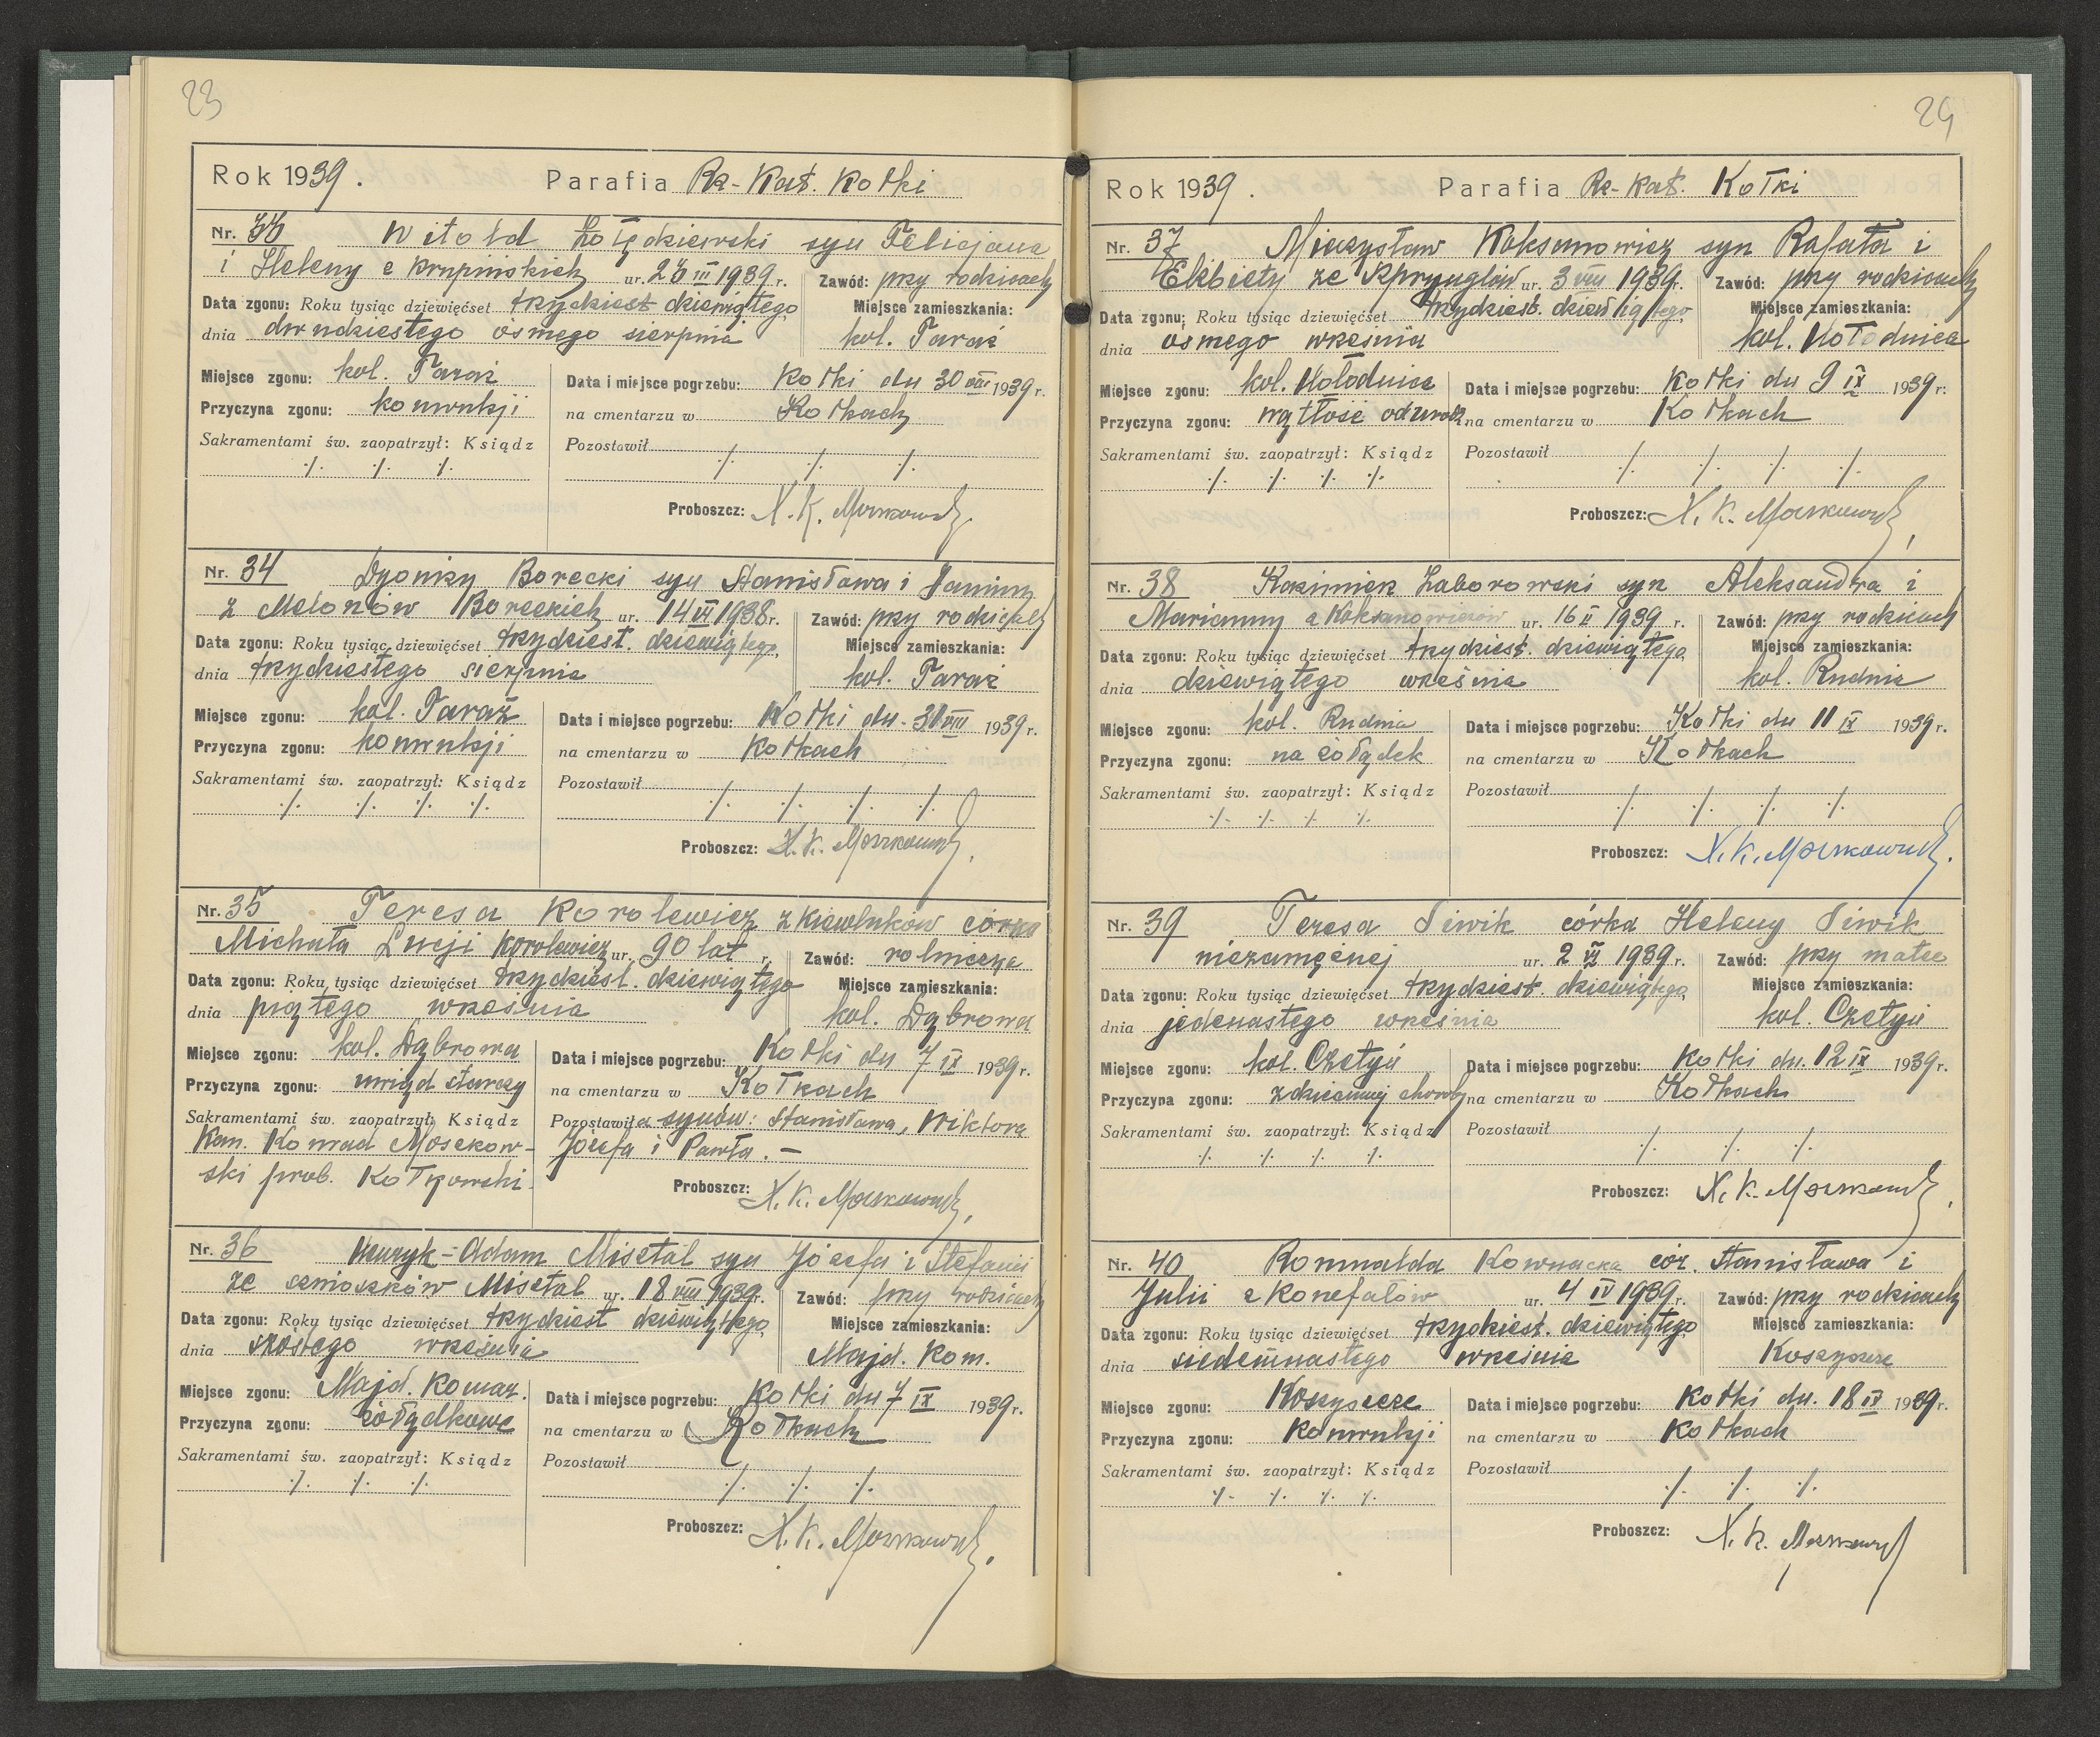 23
Rok 1939. Parafia Rz-Kat. Kołki
Nr. 33 Witold Żołędziewski syn Felicjana
i Heleny z Krupińskich ur. 26 III 1939 r. Zawód: przy rodzicach
Data zgonu: Roku tysiąc dziewięćset trzydziest dziewiątego Miejsce zamieszkania:
dnia dwudziestego ósmego sierpnia kol. Taraż
Miejsce zgonu: kol. Taraż Data i miejsce pogrzebu: Kołki dn 30 VIII 1939 r.
Przyczyna zgonu: konwulsji na cmentarzu w Kołkach
Sakramentami św. zaopatrzył: Ksiądz Pozostawił
./. ./. ./. ./. ./. ./.
Proboszcz: X. K. Moszkowski
Nr. 34 Dyonizy Borecki syn Stanisława i Janiny
z Melonów Boreckich ur. 14 VI 1938 r. Zawód: przy rodzicach
Data zgonu: Roku tysiąc dziewięćset trzydziest. dziewiątego Miejsce zamieszkania:
dnia trzydziestego sierpnia kol. Taraż
Miejsce zgonu: kol. Taraż Data i miejsce pogrzebu: Kołki dn. 31 VIII 1939 r.
Przyczyna zgonu: konwulsji na cmentarzu w Kołkach
Sakramentami św. zaopatrzył: Ksiądz Pozostawił
./. ./. ./. ./. ./. ./. ./. ./.
Proboszcz: X. K. Moszkowski.
Nr. 35 Teresa Korolewicz z córka
Michała Łucji Korolewicz ur. 90 lat r. Zawód: rolnicza
Data zgonu: Roku tysiąc dziewięćset trzydziest. dziewiątego Miejsce zamieszkania:
dnia piątego września kol. Dąbrowa
Miejsce zgonu: kol. Dąbrowa Data i miejsce pogrzebu: Kołki dn 7 IX 1939 r.
Przyczyna zgonu: uwiąd starczy na cmentarzu w Kołkach
Sakramentami św. zaopatrzył: Ksiądz Pozostawiła synów: Stanisława, Wiktora
Kan. Konrad Moszkow- Józefa i Pawła. —
ski prob. Kołkowski.
Proboszcz: X. K. Moszkowski.
Nr. 36 Henryk-Adam Misztal syn Józefa i Stefanii
ze Misztal ur. 18 VIII 1939 r. Zawód: przy rodzicach
Data zgonu: Roku tysiąc dziewięćset trzydziest dziewiątego Miejsce zamieszkania:
dnia szóstego września Majd. Kom.
Miejsce zgonu: Majd. Komar. Data i miejsce pogrzebu: Kołki dn 7 IX 1939 r.
Przyczyna zgonu: żołądkowe na cmentarzu w Kołkach
Sakramentami św. zaopatrzył: Ksiądz Pozostawił
./. ./. ./. ./. ./. ./.
Proboszcz: X. K. Moszkowski.
24
Rok 1939. Parafia Rz-Kat. Kołki
Nr. 37 Mieczysław Koksanowicz syn Rafała i
Elżbiety ze Szprynglów ur. 3 VIII 1939 r. Zawód: przy rodzicach
Data zgonu: Roku tysiąc dziewięćset trzydziest. dziewiątego Miejsce zamieszkania:
dnia ósmego września kol. Hołodnica
Miejsce zgonu: kol. Hołodnica Data i miejsce pogrzebu: Kołki dn 9 IX 1939 r.
Przyczyna zgonu: wątłość od urodz. na cmentarzu w Kołkach
Sakramentami św. zaopatrzył: Ksiądz Pozostawił
./. ./. ./. ./. ./. ./. ./. ./.
Proboszcz: X. K. Moszkowski
Nr. 38 Kazimierz Zaborowski syn Aleksandra i
Marianny z Koksanowiczów ur. 16 II 1939 r. Zawód: przy rodzicach
Data zgonu: Roku tysiąc dziewięćset trzydziest. dziewiątego Miejsce zamieszkania:
dnia dziewiątego września kol. Rudnia
Miejsce zgonu: kol. Rudnia Data i miejsce pogrzebu: Kołki dn 11 IX 1939 r.
Przyczyna zgonu: na żołądek na cmentarzu w Kołkach
Sakramentami św. zaopatrzył: Ksiądz Pozostawił
./. ./. ./. ./. ./. ./. ./. ./.
Proboszcz: X. K. Moszkowski.
Nr. 39 Teresa Siwik córka Heleny Siwik
niezamężnej ur. 2 VI 1939 r. Zawód: przy matce
Data zgonu: Roku tysiąc dziewięćset trzydziest. dziewiątego Miejsce zamieszkania:
dnia jedenastego września kol. Czetyń
Miejsce zgonu: kol. Czetyń Data i miejsce pogrzebu: Kołki dn. 12 IX 1939 r.
Przyczyna zgonu: z dziecinnej choroby na cmentarzu w Kołkach
Sakramentami św. zaopatrzył: Ksiądz Pozostawił
./. ./. ./. ./. ./. ./. ./.
Proboszcz: X. K. Moszkowski.
Nr. 40 Romualda Kownacka cór. Stanisława i
Julii z Konefałów ur. 4 IV 1939 r. Zawód: przy rodzicach
Data zgonu: Roku tysiąc dziewięćset trzydziest. dziewiątego Miejsce zamieszkania:
dnia siedemnastego września Koszyszcze
Miejsce zgonu: Koszyszcze Data i miejsce pogrzebu: Kołki dn. 18 IX 1939 r.
Przyczyna zgonu: Konwulsji na cmentarzu w Kołkach
Sakramentami św. zaopatrzył: Ksiądz Pozostawił
./. ./. ./. ./. ./. ./. ./.
Proboszcz: X. K. Moszkowski